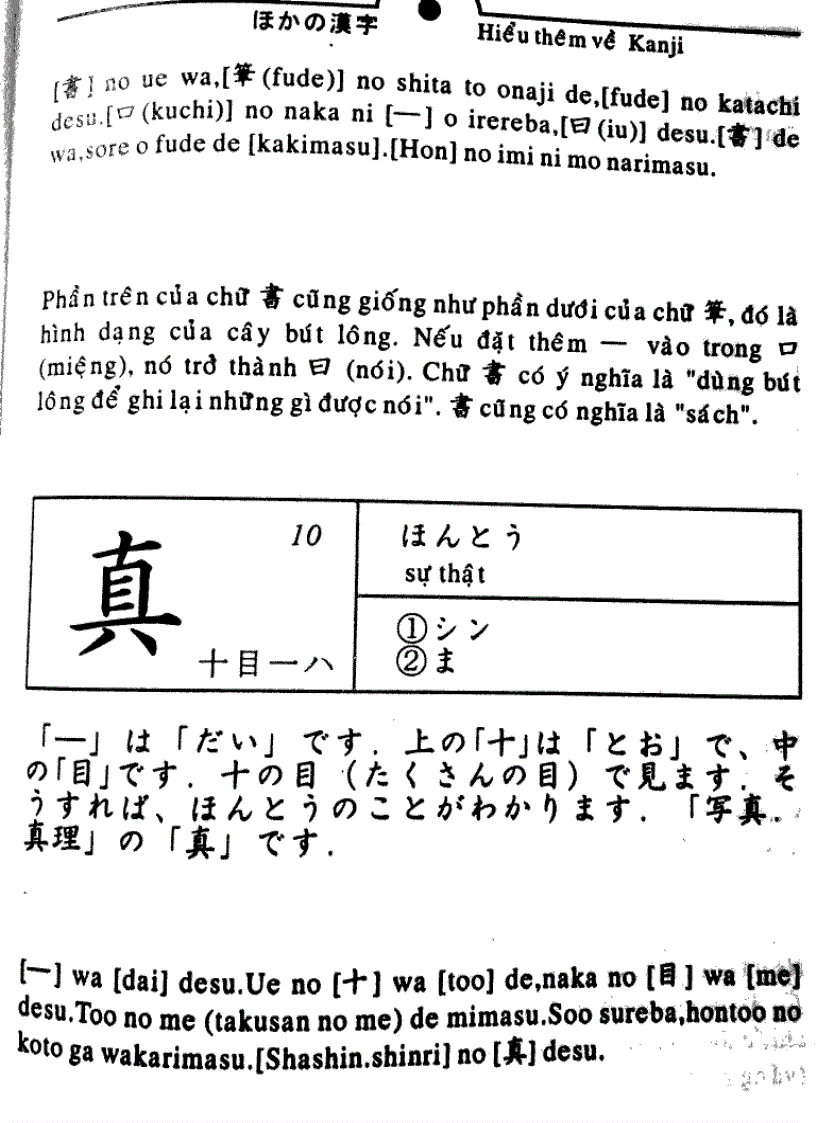 ほかの漢字
Hiểu thêm về Kanji
[書] no ue wa,[筆 (fude)] no shita to onaji de,[fude] no katachi
desu.[口 (kuchi)] no naka ni [一] o irereba,[曰 (iu)] desu.[書] de
wa,sore o fude de [kakimasu].[Hon] no imi ni mo narimasu.
Phần trên của chữ 書 cũng giống như phần dưới của chữ 筆, đó là
hình dạng của cây bút lông. Nếu đặt thêm 一 vào trong 口
(miệng), nó trở thành 曰 (nói). Chữ 書 có ý nghĩa là "dùng bút
lông để ghi lại những gì được nói". 書 cũng có nghĩa là "sách".
真
10
十目一ハ
ほんとう
sự thật
①シン
②ま
「一」は「だい」です. 上の「十」は「とお」で、中
の「目」です. 十の目（たくさんの目）で見ます. そ
うすれば、ほんとうのことがわかります. 「写真.
真理」の「真」です.
[一] wa [dai] desu.Ue no [十] wa [too] de,naka no [目] wa [me]
desu.Too no me (takusan no me) de mimasu.Soo sureba,hontoo no
koto ga wakarimasu.[Shashin.shinri] no [真] desu.